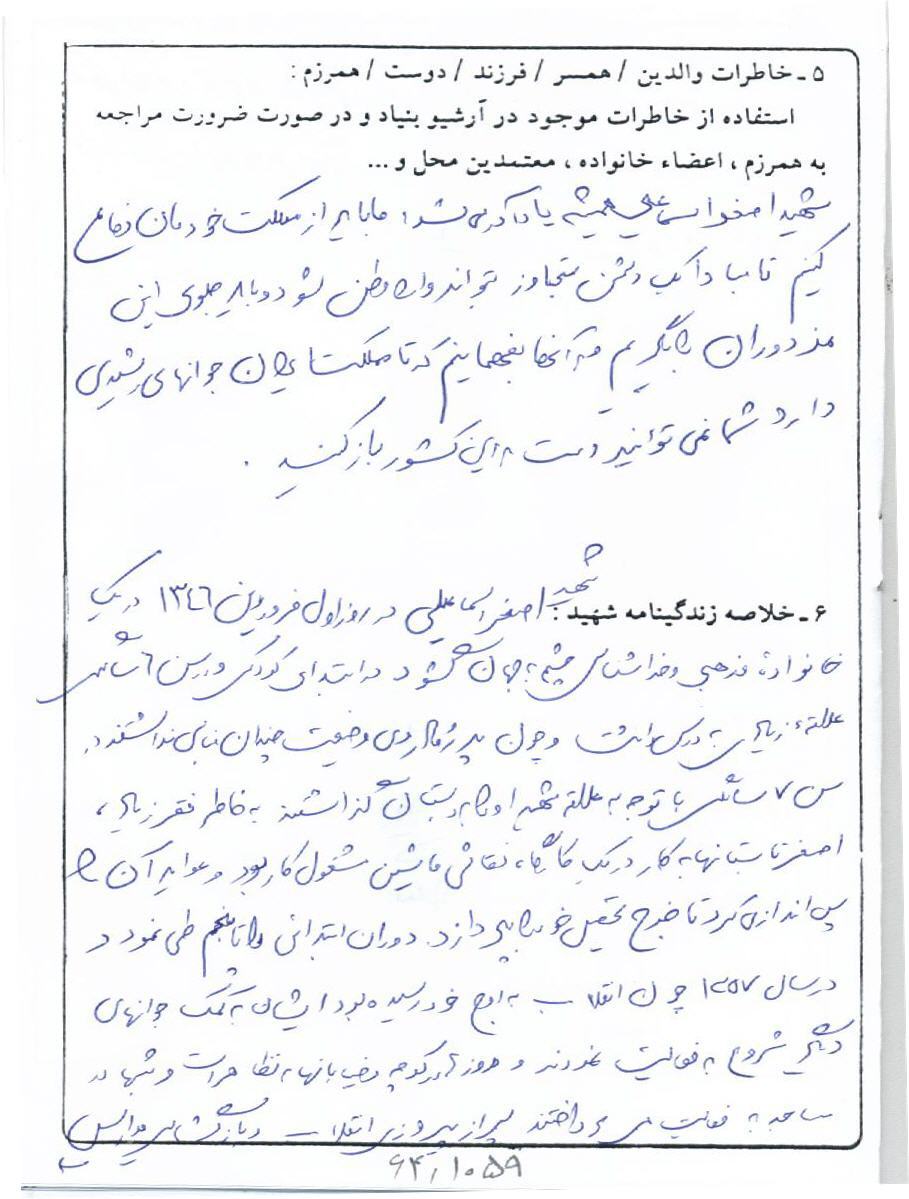 ۵ ـ خاطرات والدین / همسر / فرزند / دوست / همرزم :
استفاده از خاطرات موجود در آرشیو بنیاد و در صورت ضرورت مراجعه
به همرزم ، اعضاء خانواده ، معتمدین محل و ...
شهید اصغر اسماعیلی همیشه یادآور می شد : ما باید از مملکت خودمان دفاع
کنیم تا مبادا که دشمن متجاوز بتواند وارد وطن شود و باید جلوی این
مزدوران را بگیریم و به آنها بفهمانیم که تا مملکت ایران جوانهای رشیدی
دارد شما نمی توانید دست به این کشور باز کنید .
۶ ـ خلاصه زندگینامه شهید : شهید اصغر اسماعیلی در روز اول فروردین ۱۳۴۶ در یک
خانواده مذهبی و خداشناس چشم به جهان گشود در ابتدای کودکی و در سن ۶ سالگی
علاقه زیادی به درس داشت و چون پدر و مادر وی وضعیت چندان مناسبی نداشتند در
سن ۷ سالگی با توجه به علاقه شهید او را به دبستان گذاشتند به خاطر فقر زیاد ،
اصغر تابستانها به کار در یک کارگاه نقاشی ماشین مشغول کار بود و عواید آن را
پس اندازی کرد تا خرج تحصیل خود را بپردازد. دوران ابتدائی را تا پنجم طی نمود و
در سال ۱۳۵۷ چون انقلاب به اوج خود رسیده بود ایشان به کمک جوانهای
دیگر شروع به فعالیت نمودند و روزها در کوچه و خیابانها به تظاهرات و شبها در
مساجد به فعالیت می پرداختند پس از پیروزی انقلاب و بازگشایی مدارس
۶۴,۱۰۵۹